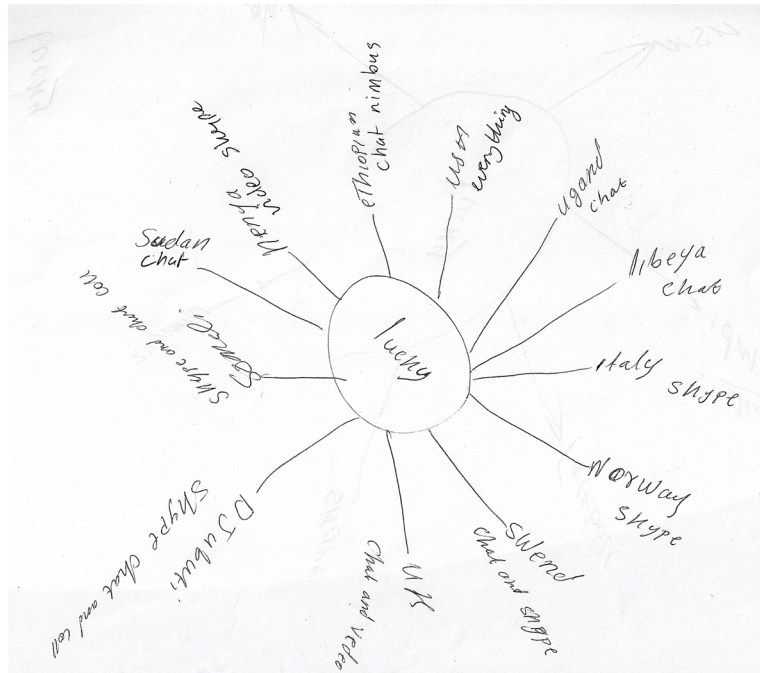 lueny
ethiopian
chat nimbus
USA
everything
ugand
chat
libeya
chat
italy
skype
Norway
skype
swend
chat and skype
UK
chat and vedeo
DJubuti
skype chat and coll
Somali
skype and chat coll
Sudan
chat
kenya
video skeype